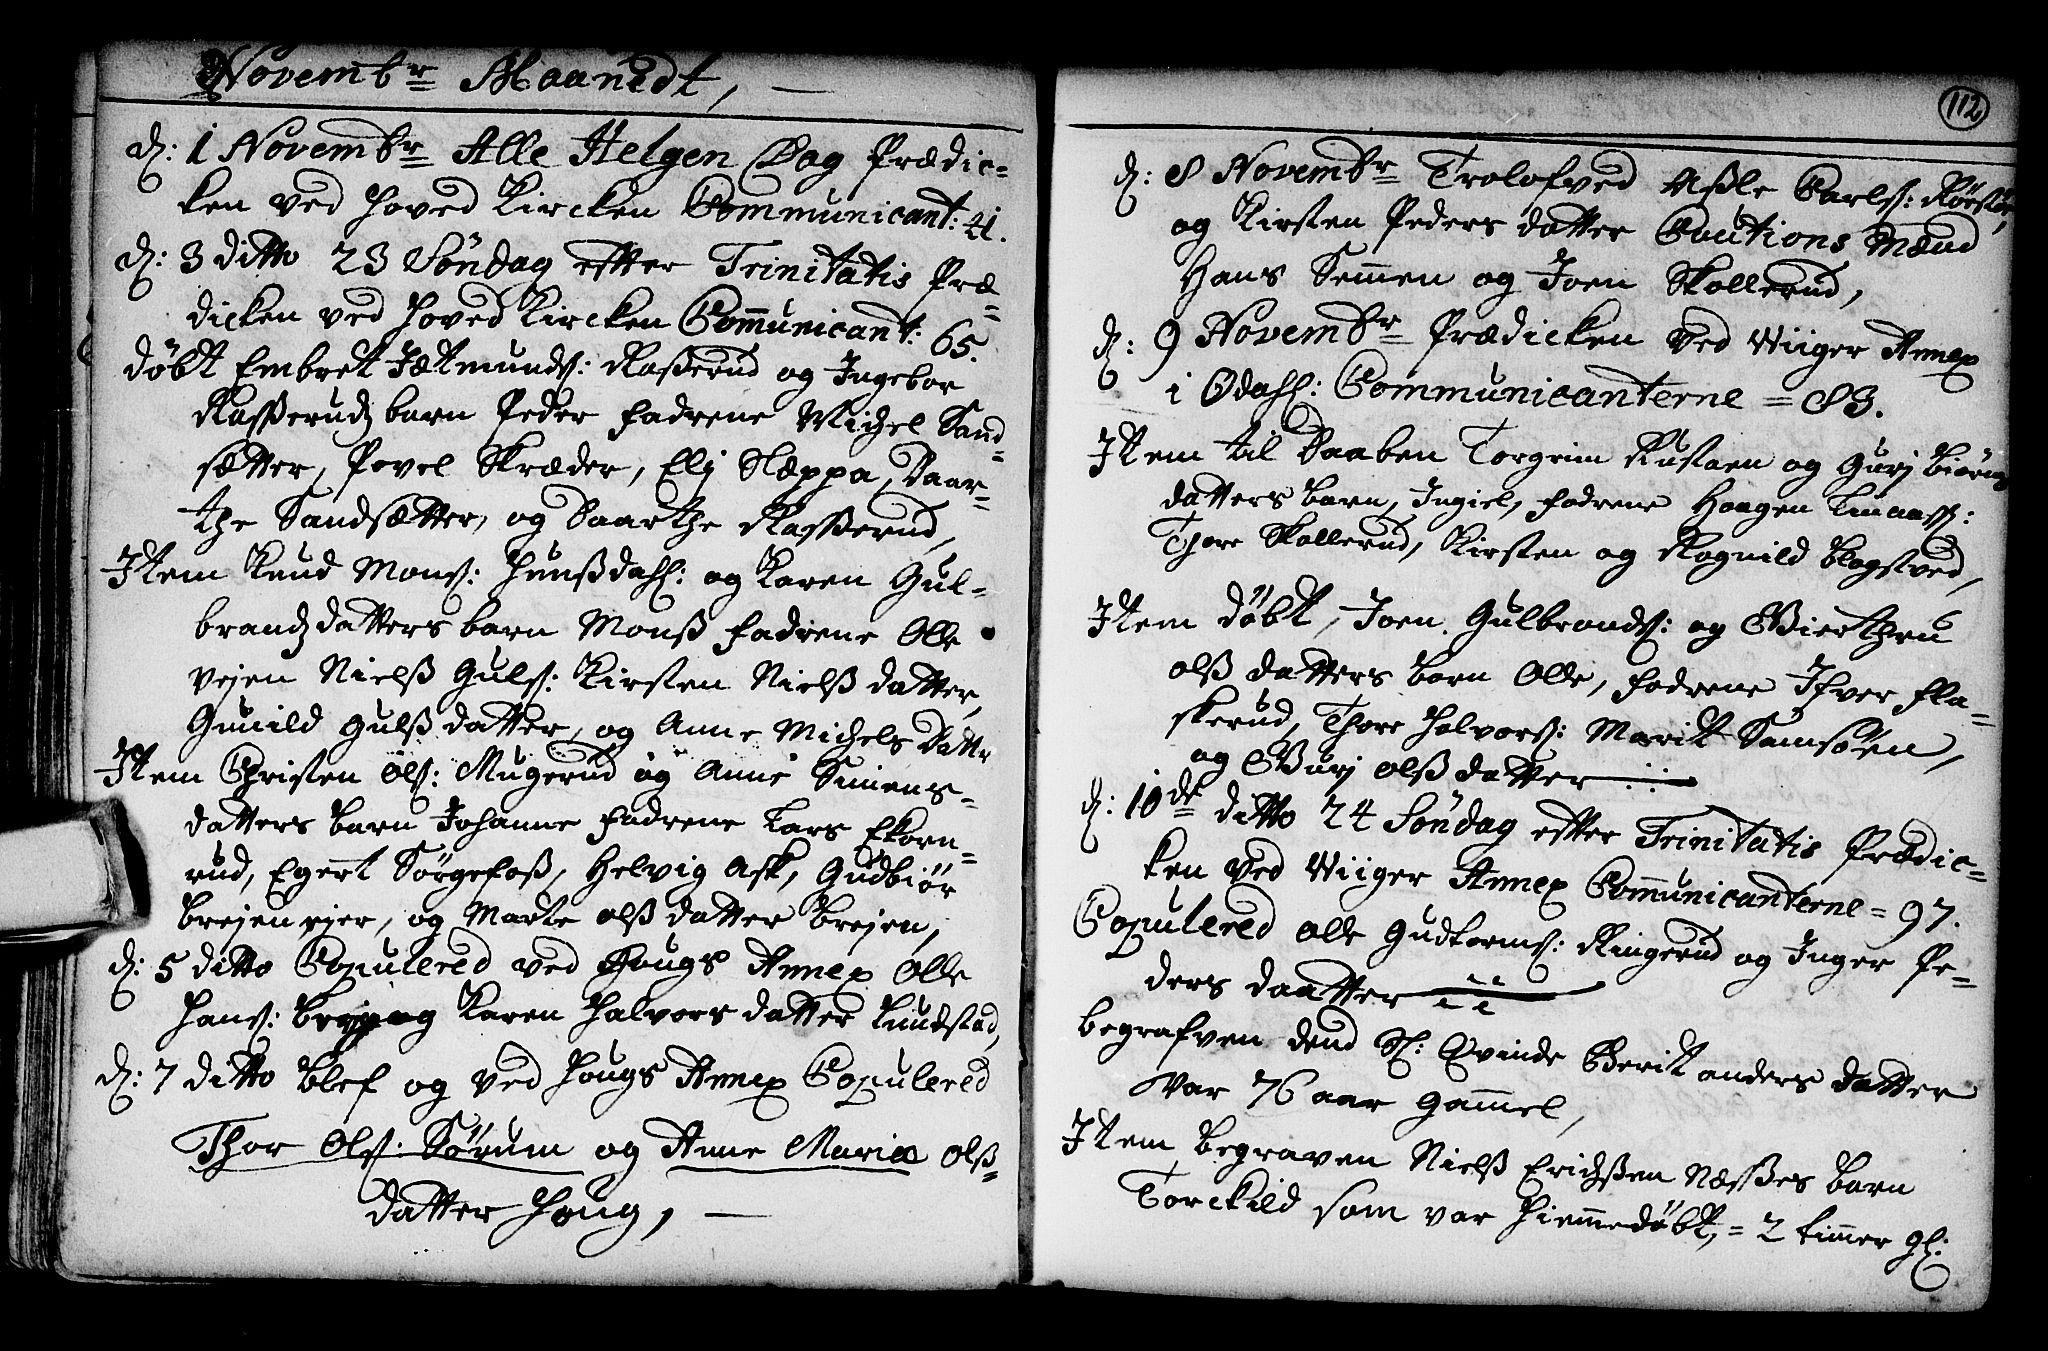 Novembr Maanedt,
d: 1 Novembr Alle Helgen Dag Prædic=
ken ved Hoved Kircken Communicant: 41.
d: 3 ditto 23 Søndag efter Trinitatis Præ=
dicken ved Hoved Kircken Communicant: 65.
døbt Embret Jætmunds: Raßerud og Ingebor
Raßeruds barn Peder fadrene Michel Sand=
sætter, Povel Skræder, Elj Slæppa, Daar=
the Sandsætter, og Daarthe Raßerud,
Item Knud Mons: Hunßdahl: og Karen Gul=
brands datters barn Monß fadrene Olle
vejen Nielß Guls: Kirsten Nielß datter,
Gunild Gulß datter, og Anne Michels Dattr
Item Christen Ols: Mugerud og Anne Simens=
datters barn Johanne fadrene Lars Ekorn=
rud, Egert Sørgefoß, Helvig Ask, Gudbiør
brejen ejer, og Marte olß datter brejen,
d: 5 ditto Copulered ved Hougs Annex Olle
Hans: og Karen Halvors datter Lundstad,
d: 7 ditto blef og ved Hougs Annex Copulered
Thor Ols: Sørum og Anne Maria olß=
datter Houg,
112
d: 8 Novembr Trolofved Aßle Carls: Rørstør,
og Kirsten Peders datter Cautions Mænd
Hans Semen og Joen Skollerud,
d: 9 Novembr Prædicken ved Wiiger Annex
i Odahl: Communicanterne = 83.
Item til Daaben Torgrim Rustaen og Gurj biørns
datters barn, Ingiel, fadrene Haagen
Thore Skollerud, Kirsten og Ragnild blagstved,
Item døbt, Joen Gulbrands: og Gierthru
olß datters barn Olle, fadrene Ifver Fla=
skerud, Thore Halvors: Marit Samsøen,
og Gurj olß datter
d: 10de ditto 24 Søndag efter Trinitatis Prædic=
ken ved Wiiger Annex Communicanterne = 97.
Copulered Olle Gudtorms: Ringerud og Inger Pe=
ders daatter
begrafven dend Sl: Qvinde Berit anders datter
var 76 aar gammel,
Item begraven Nielß Erichßen Næßes barn
Torckild som var Hiemmedøbt, = 2 timer gl: